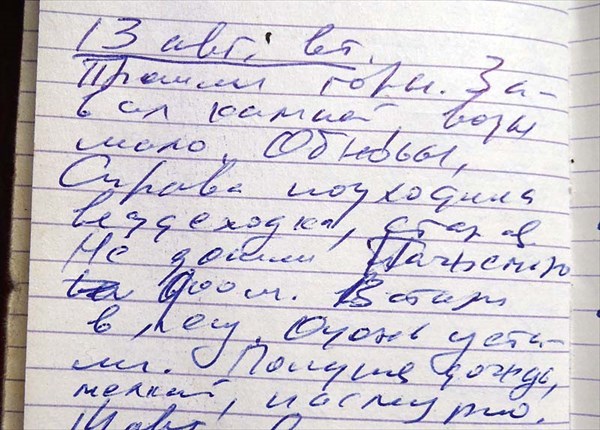 13 авг. вт.
Прошли горы. За-
вал камней, воды
мало. Обновы,
Справа подходила
вездеходка, старая
Не дошли
км. Встали
в лесу. Очень уста-
ли. Полудня дождь,
мелкий, пасмурно.
14 авг.